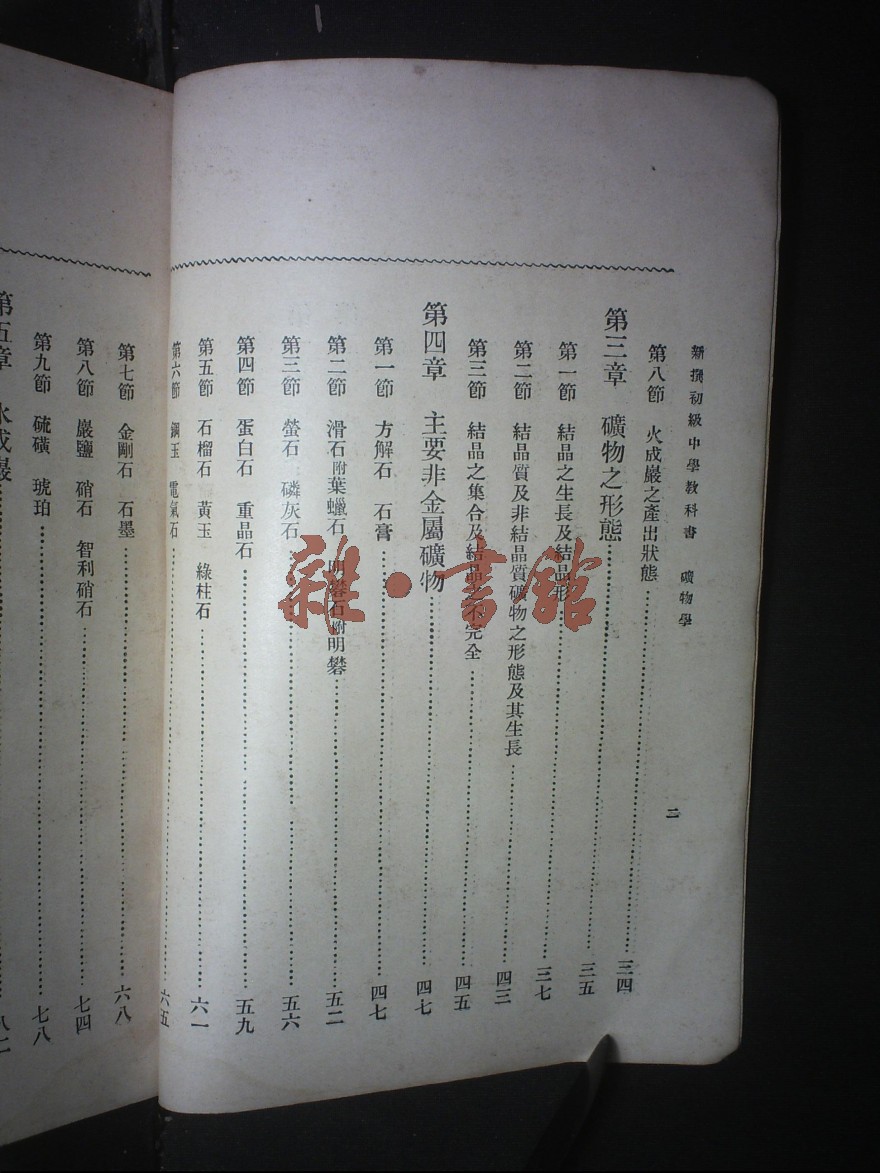 新撰初級中學教科書 礦物學
二
第八節 火成巖之產出狀態 三四
第三章 礦物之形態 三五
第一節 結晶之生長及結晶形 三七
第二節 結晶質及非結晶質礦物之形態及其生長 四三
第三節 結晶之集合及結晶之不完全 四五
第四章 主要非金屬礦物 四七
第一節 方解石 石膏 四七
第二節 滑石附葉蠟石 明礬石附明礬 五二
第三節 螢石 磷灰石 五六
第四節 蛋白石 重晶石 五九
第五節 石榴石 黃玉 綠柱石 六一
第六節 鋼玉 電氣石 六五
第七節 金剛石 石墨 六八
第八節 巖鹽 硝石 智利硝石 七四
第九節 硫磺 琥珀 七八
第五章 水成巖 八二
雜·書館